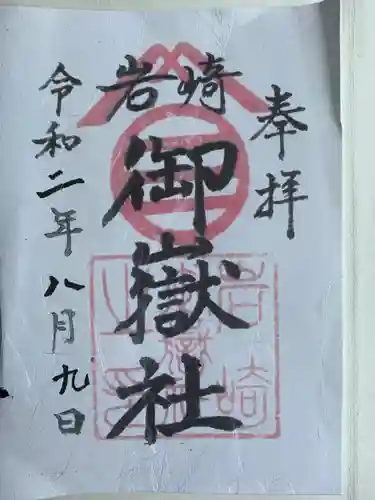 奉拝
岩崎
御嶽社
令和二年八月九日
岩崎
御嶽